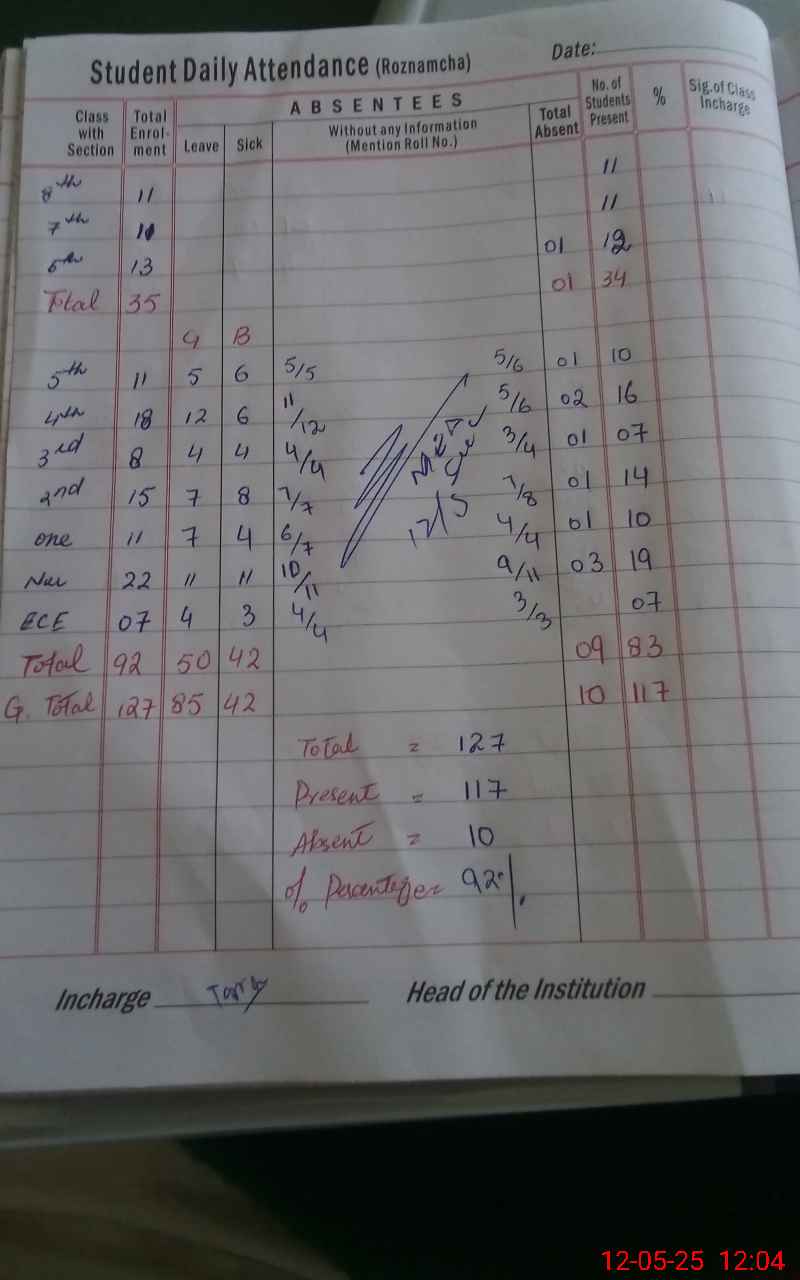 Student Daily Attendance (Roznamcha) Date:
Class with Section Total Enrol-ment ABSENTEES Leave Sick Without any Information (Mention Roll No.) Total Absent No. of Students Present % Sig. of Class Incharge
8th 11 11
7th 11 11
6th 13 01 12
Total 35 01 34
G B
5th 11 5 6 5/5 5/6 01 10
4th 18 12 6 11/12 5/6 02 16
3rd 8 4 4 4/4 3/4 01 07
2nd 15 7 8 7/7 7/8 01 14
one 11 7 4 6/7 4/4 01 10
Nur 22 11 11 10/11 9/11 03 19
ECE 07 4 3 4/4 3/3 07
Total 92 50 42 09 83
G. Total 127 85 42 10 117
12/5
Total = 127
Present = 117
Absent = 10
% Pacentege= 92%
Incharge
Head of the Institution
12-05-25 12:04